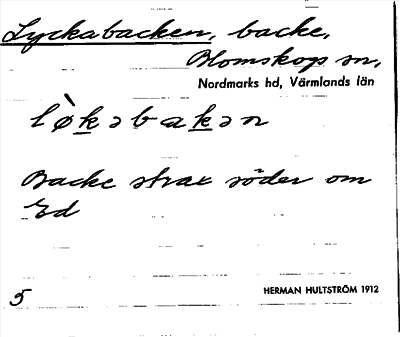 Lyckabacken, backe,
Blomskogs sn,
Nordmarks hd, Värmlands län
lø̀kəbakən
Backe strax söder om
Ed
5 HERMAN HULTSTRÖM 1912